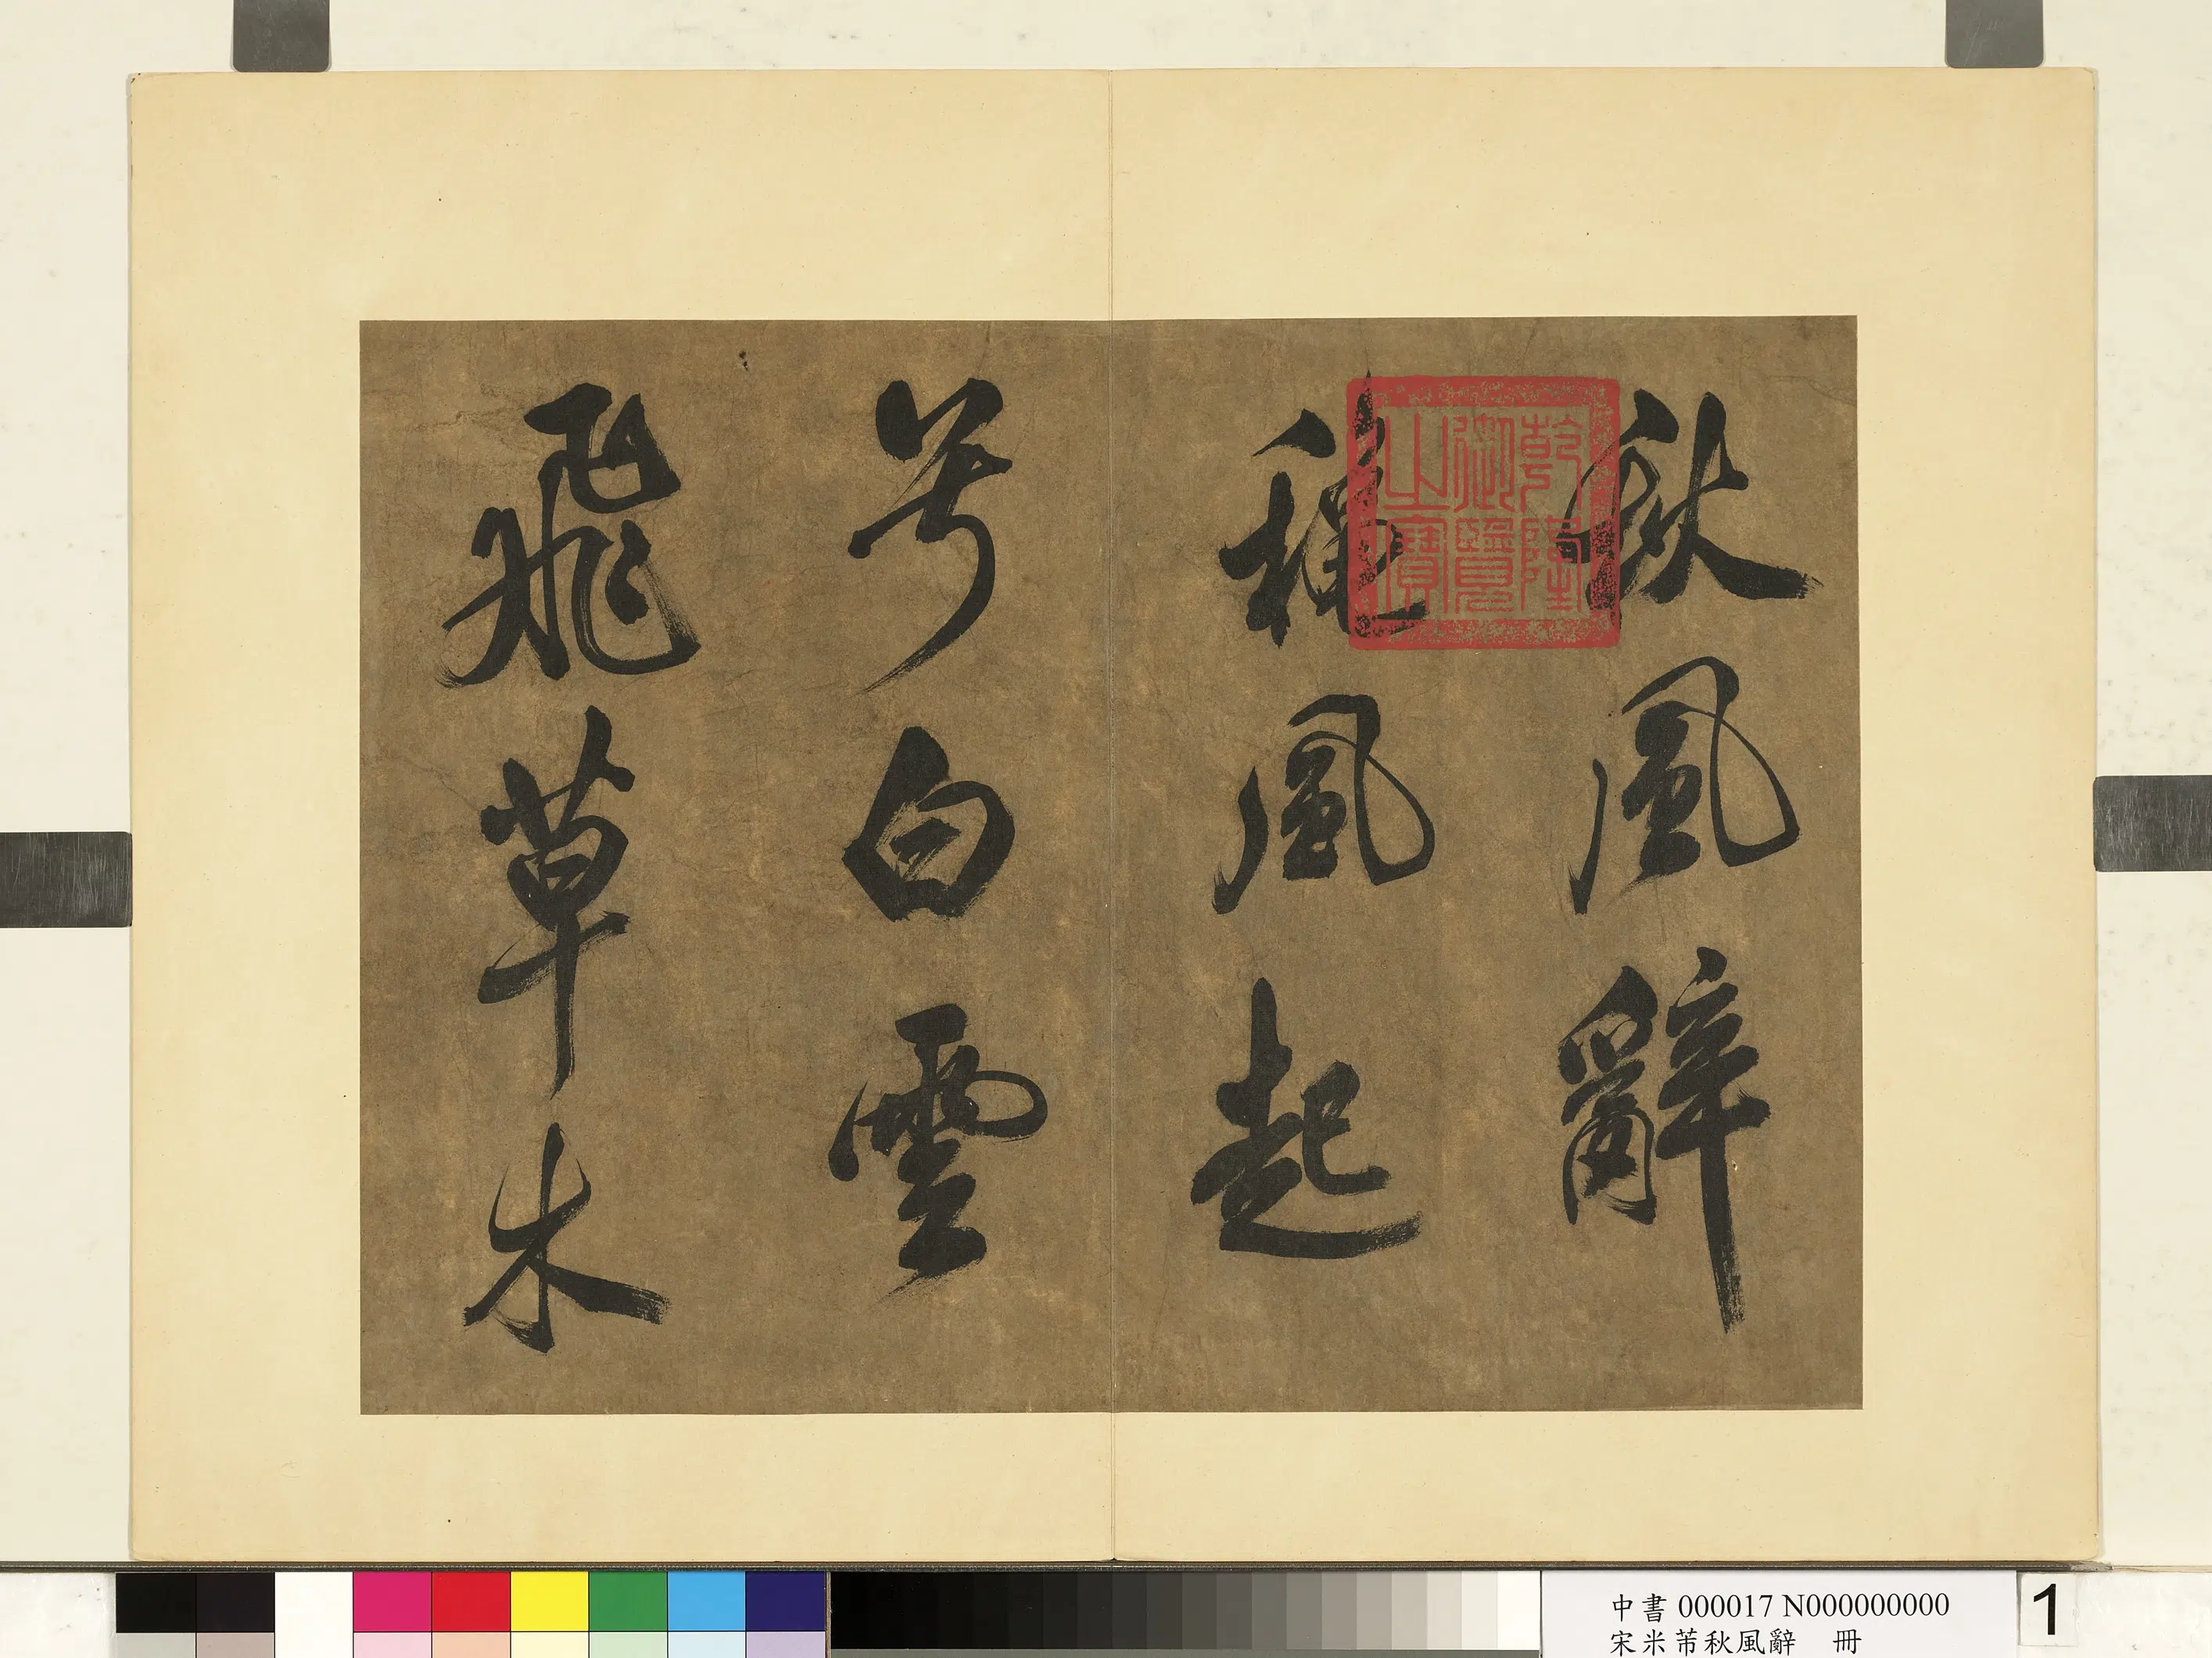 秋風辭
穐風起
兮白雲
飛草木
乾隆
御覽
之寶
中書 000017 N000000000
宋米芾秋風辭 冊
1